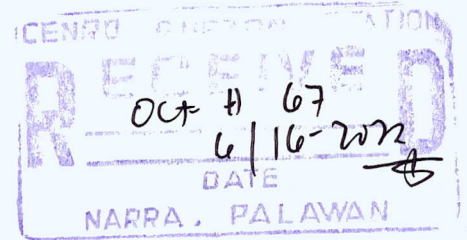 CENRO
RECEIVED
OCT # 67
6/16-2022
DATE
NARRA, PALAWAN